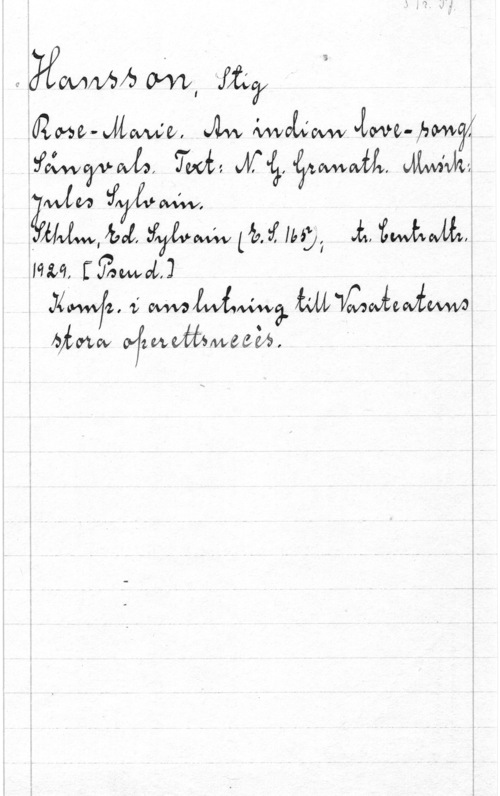 Hansson, Stig
Rose-Marie. An indian love-song.
Sångvals. Text: N. G. Granath. Musik:
Jules Sylvain.
Sthlm, Ed. Sylvain (E. S. 165); tr. Centraltr.
1929. [Pseud.]
Komp. i anslutning till Vasateaterns
stora operettsuccès.